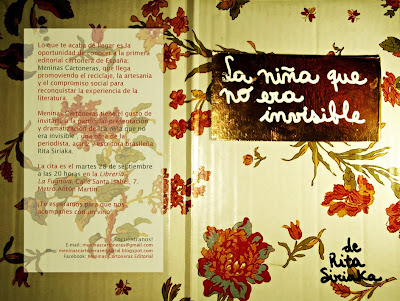 Lo que te acaba de llegar es la
oportunidad de conocer a la primera
editorial cartonera de España:
Meninas Cartoneras, que llega
promoviendo el reciclaje, la artesanía
y el compromiso social para
reconquistar la experiencia de la
literatura.
Meninas Cartoneras tiene el gusto de
invitarte a la presentación
y dramatización de La niña que no
era invisible, una obra de la
periodista, actriz y escritora brasileña
Rita Siriaka.
La cita es el martes 28 de septiembre
a las 20 horas en la Librería
La Fugitiva, Calle Santa Isabel, 7.
Metro Antón Martín.
¡Te esperamos para que nos
acompañes con un vino!
¡Encuéntranos!
E-mail: meninascartoneras@gmail.com
meninascartoneraseditorial.blogspot.com
Facebook: Meninas Cartoneras Editorial
La niña que
no era
invisible
de
Rita
Siriaka